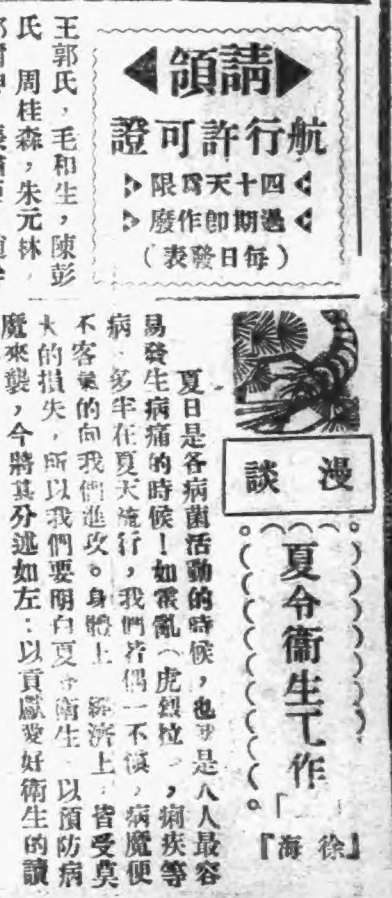 請領
航行許可證
四十天爲限
過期卽作廢
（每日發表）
王郭氏，毛和生，陳彭
氏 周桂森，朱元林，
漫談
夏令衞生工作
『徐海』
夏日是各病菌活動的時候，也是人最容
易發生病痛的時候！如霍亂（虎烈拉），痢疾等
病，多半在夏天流行，我們若偶一不慎，病魔便
不客氣的向我們進攻。身體上 經濟上，皆受莫
大的損失，所以我們要明白夏令衛生，以預防病
魔來襲，今將其分述如左：以貢獻愛好衛生的讀